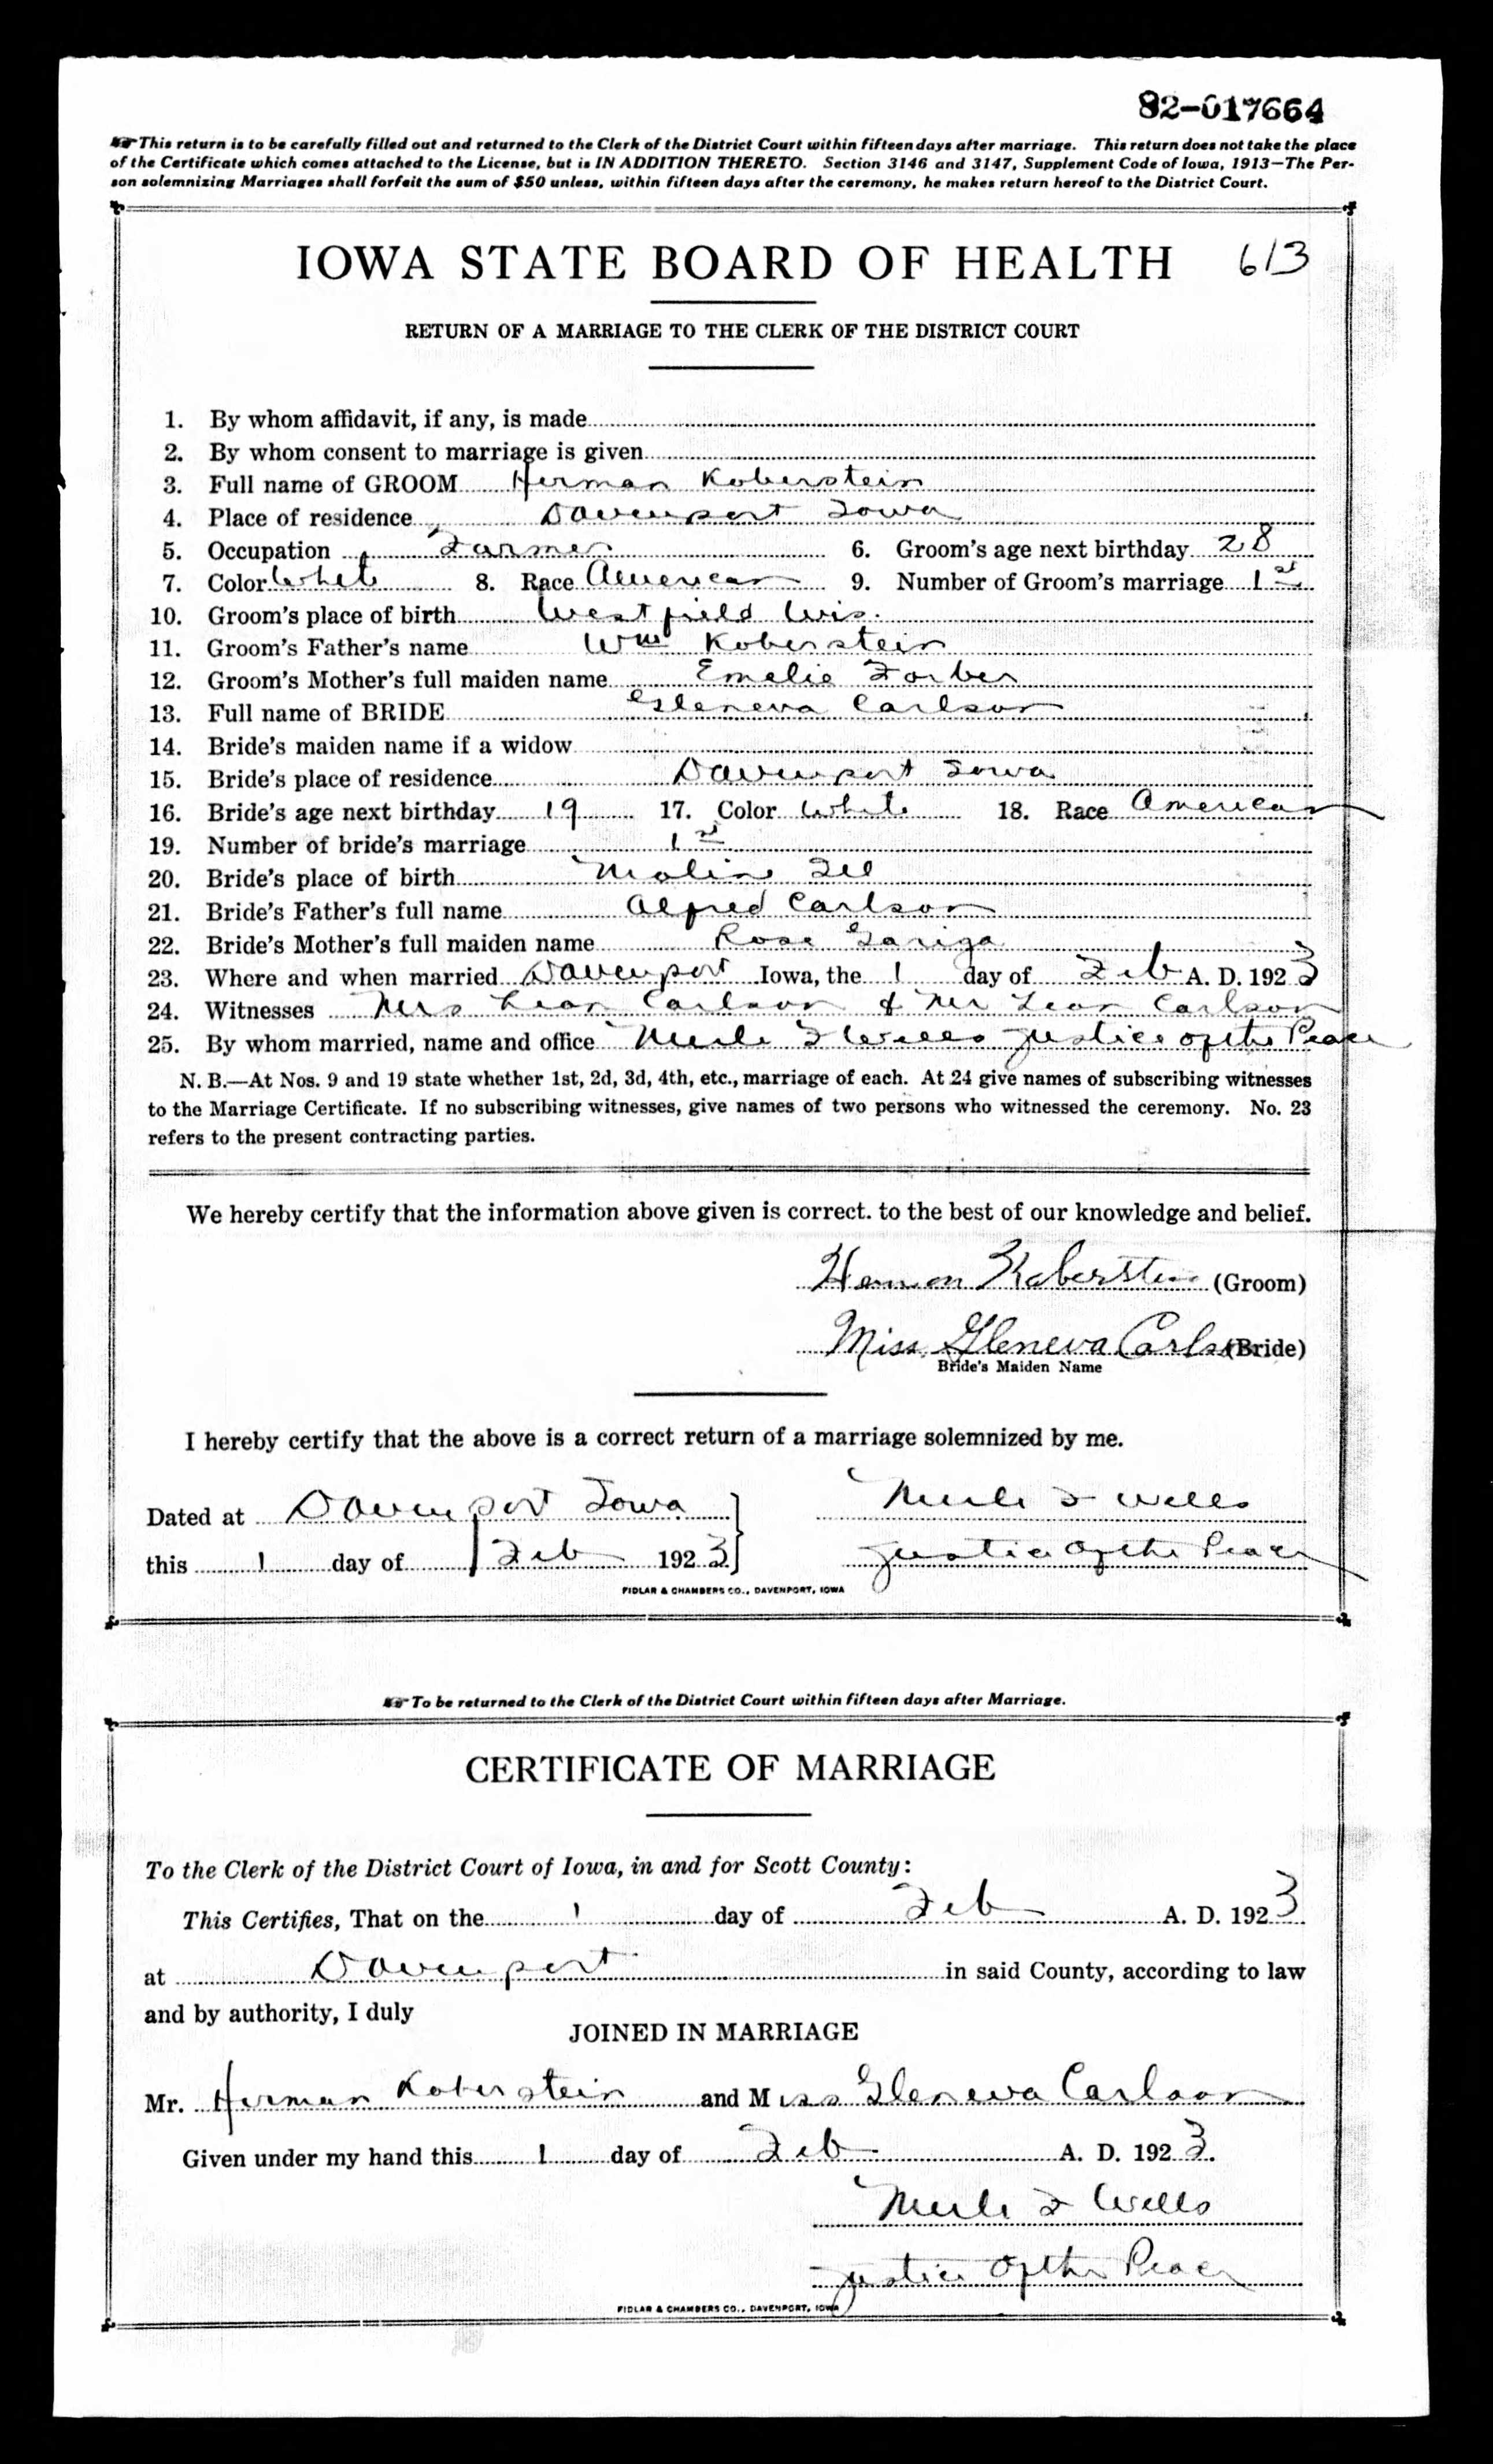 82-017664
This return is to be carefully filled out and returned to the Clerk of the District Court within fifteen days after marriage. This return does not take the place
of the Certificate which comes attached to the License, but is IN ADDITION THERETO. Section 3146 and 3147, Supplement Code of Iowa, 1913—The Per-
son solemnizing Marriages shall forfeit the sum of $50 unless, within fifteen days after the ceremony, he makes return hereof to the District Court.
IOWA STATE BOARD OF HEALTH 613
RETURN OF A MARRIAGE TO THE CLERK OF THE DISTRICT COURT
1. By whom affidavit, if any, is made
2. By whom consent to marriage is given
3. Full name of GROOM Herman Koberstein
4. Place of residence Davenport Iowa
5. Occupation Farmer 6. Groom's age next birthday 28
7. Color White 8. Race American 9. Number of Groom's marriage 1st
10. Groom's place of birth Westfield Wis.
11. Groom's Father's name Wm Koberstein
12. Groom's Mother's full maiden name Emelie Forber
13. Full name of BRIDE Gleneva Carlson
14. Bride's maiden name if a widow
15. Bride's place of residence Davenport Iowa
16. Bride's age next birthday 19 17. Color White 18. Race American
19. Number of bride's marriage 1st
20. Bride's place of birth Moline Ill
21. Bride's Father's full name Alfred Carlson
22. Bride's Mother's full maiden name Rose Gariga
23. Where and when married Davenport Iowa, the 1 day of Feb A. D. 1923
24. Witnesses Mrs Leon Carlson & Mr Leon Carlson
25. By whom married, name and office Merle F Wells Justice of the Peace
N. B.—At Nos. 9 and 19 state whether 1st, 2d, 3d, 4th, etc., marriage of each. At 24 give names of subscribing witnesses
to the Marriage Certificate. If no subscribing witnesses, give names of two persons who witnessed the ceremony. No. 23
refers to the present contracting parties.
We hereby certify that the information above given is correct. to the best of our knowledge and belief.
Herman Koberstein (Groom)
Miss Gleneva Carlson (Bride)
Bride's Maiden Name
I hereby certify that the above is a correct return of a marriage solemnized by me.
Dated at Davenport Iowa Merle F Wells
this 1 day of Feb 1923 Justice of the Peace
FIDLAR & CHAMBERS CO., DAVENPORT, IOWA
To be returned to the Clerk of the District Court within fifteen days after Marriage.
CERTIFICATE OF MARRIAGE
To the Clerk of the District Court of Iowa, in and for Scott County:
This Certifies, That on the 1 day of Feb A. D. 1923
at Davenport in said County, according to law
and by authority, I duly
JOINED IN MARRIAGE
Mr. Herman Koberstein and Miss Gleneva Carlson
Given under my hand this 1 day of Feb A. D. 1923.
Merle F Wells
Justice of the Peace
FIDLAR & CHAMBERS CO., DAVENPORT, IOWA